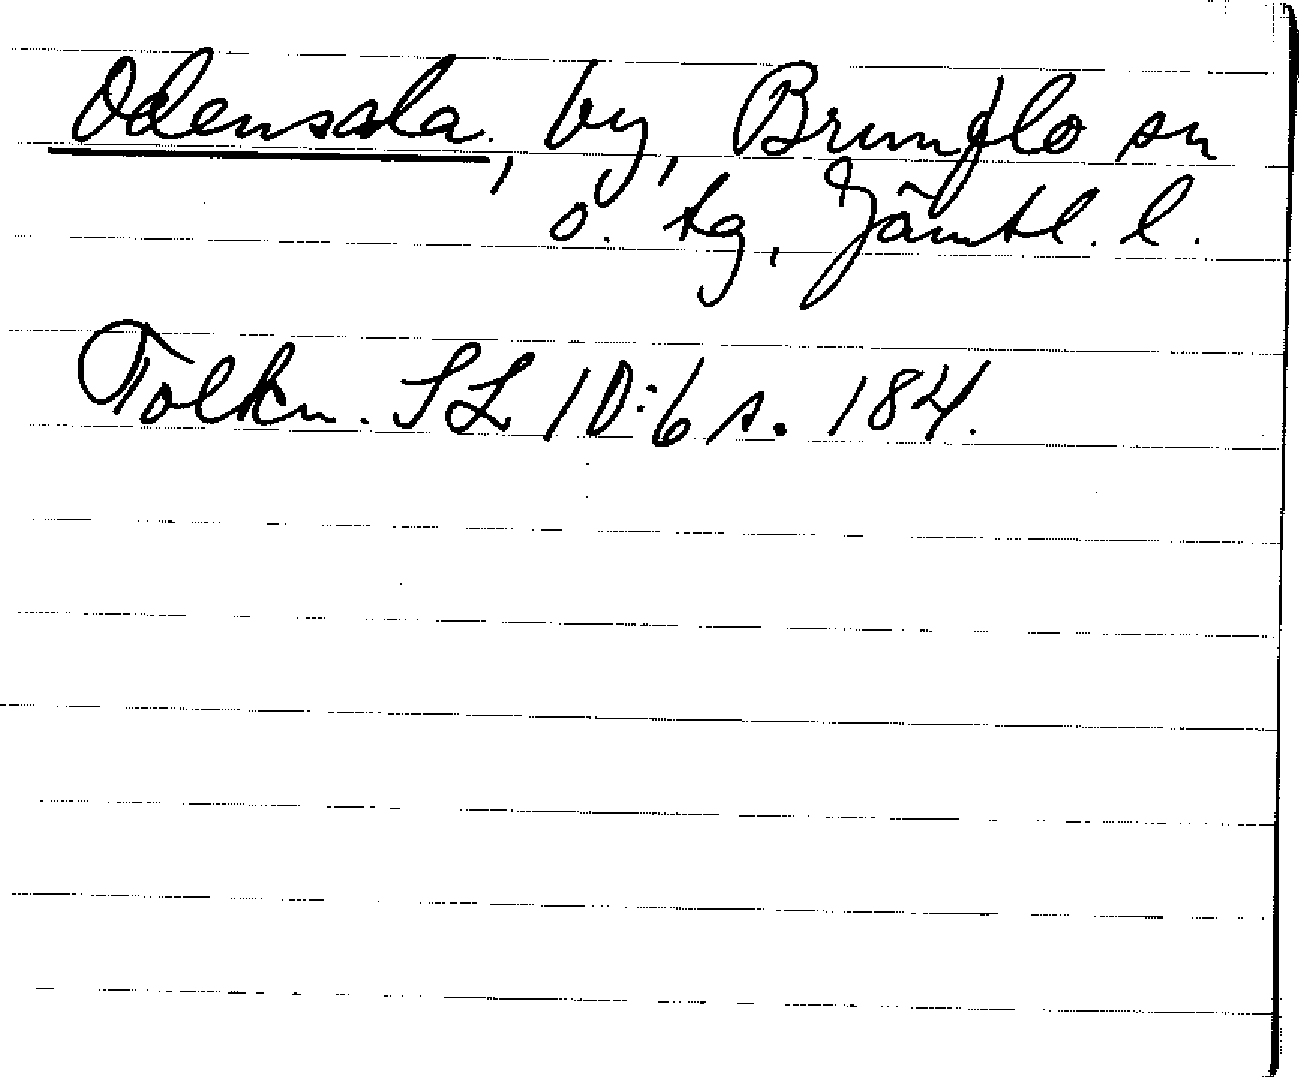 Odensala, by, Brunflo sn
o. tg, Jämtl. l.
Tolkn. SL 1D:6 s. 184.